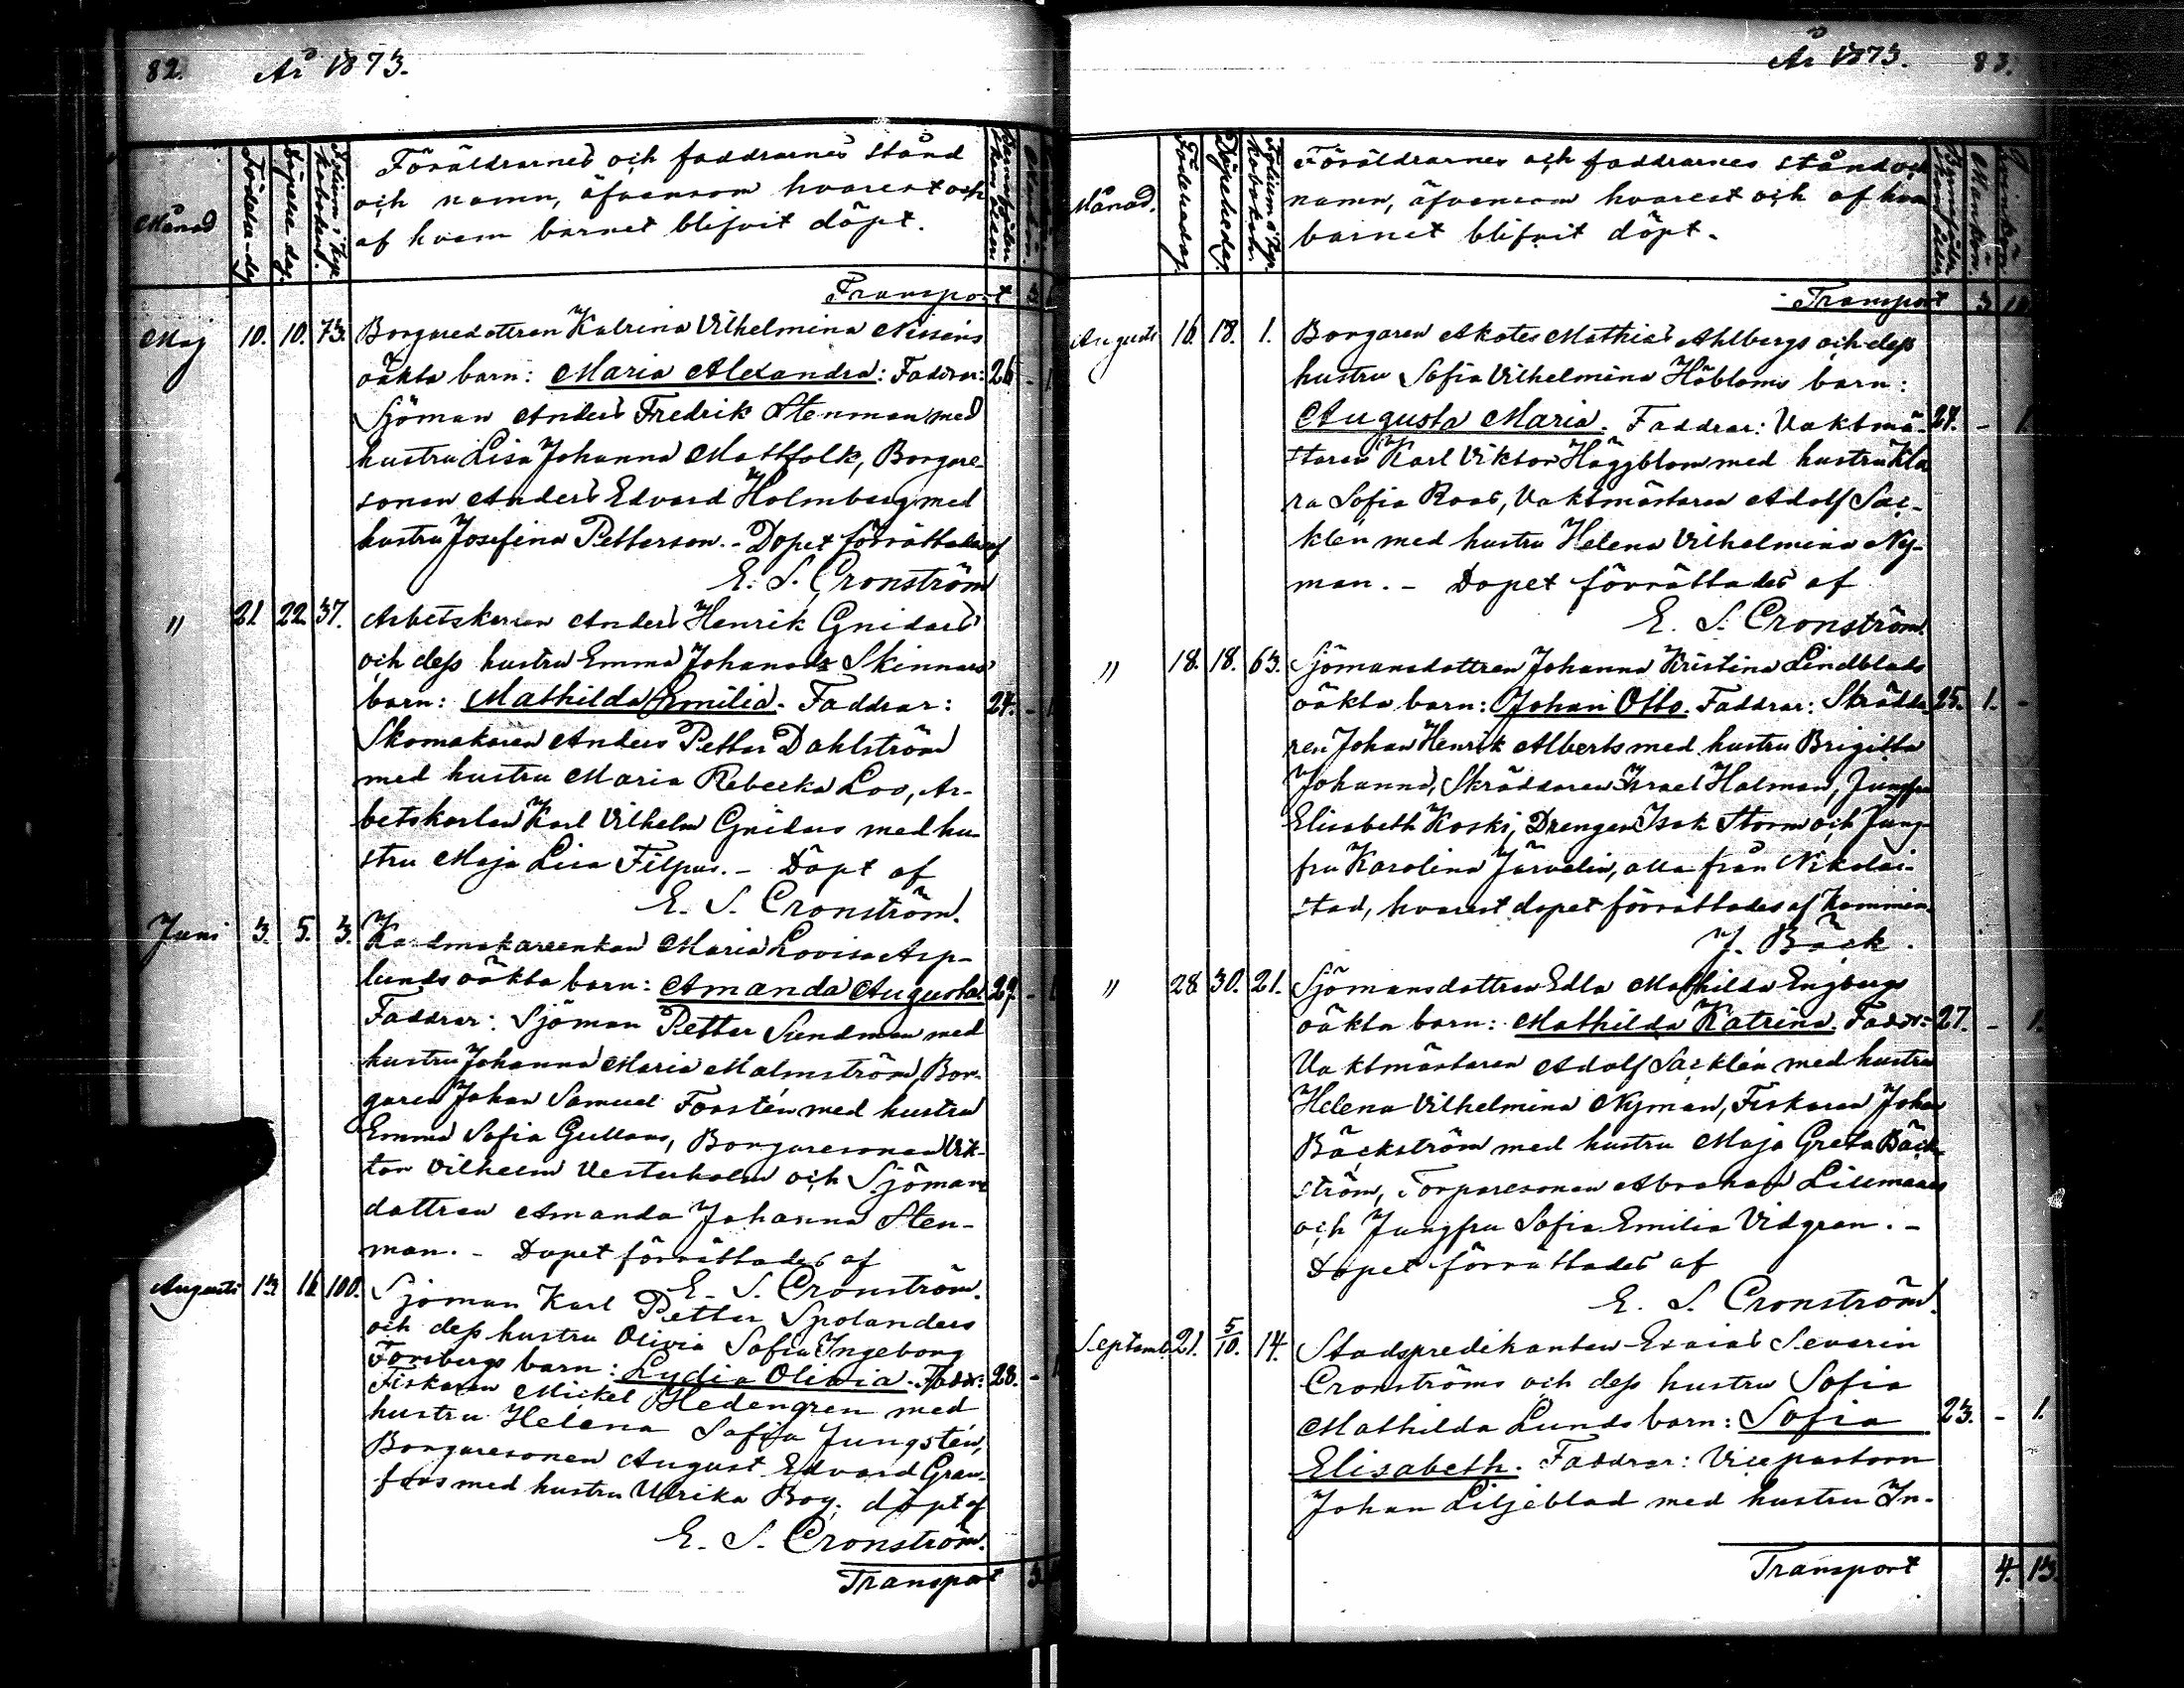 82. År 1873.
Månad
Födelse-dag
Döpelse dag.
Föräldrarnes och faddrarnes stånd
och namn, äfvensom hvarest och
af hvem barnet blifvit döpt.
Transport 3
Maj 10. 10. 73. Borgaredottren Katrina Vilhelmina Nissens
oäkta barn: Maria Alexandra: Faddrar: 26 - 1
Sjöman Anders Fredrik Stenman med
hustru Lisa Johanna Mattfolk, Borgare-
sonen Anders Edvard Holmberg med
hustru Josefina Petterson. - Dopet förrättades af
E. S. Cronström
" 21 22. 37. Arbetskarlen Anders Henrik Gnidars
och dess hustru Emma Johanna Skinnars
barn: Mathilda Emilia. Faddrar: 24. - 1
Skomakaren Anders Petter Dahlström
med hustru Maria Rebecka Loo, Ar-
betskarlen Karl Vilhelm Gnidars med hu-
stru Maja Lisa Filpus. - Döpt af
E. S. Cronström.
Juni 3. 5. 3. Kardmakareenkan Maria Lovisa Asp-
lunds oäkta barn: Amanda Augusta. 27. - 1
Faddrar: Sjöman Petter Sundman med
hustru Johanna Maria Malmström, Bor-
garen Johan Samuel Forstén med hustru
Emma Sofia Gullans, Borgaresonen Vik-
tor Vilhelm Vesterholm och Sjömans
dottren Amanda Johanna Sten-
man. - Dopet förrättades af
E. S. Cronström.
Augusti 13 16. 100. Sjöman Karl Petter Spolanders
och dess hustru Olivia Sofia Ingeborg
Forsbergs barn: Lydia Olivia. Faddr: 28. - 1
Fiskaren Mickel Hedengren med
hustru Helena Sofia Jungstén,
Borgaresonen August Edvard Gran-
fors med hustru Ulrika Boy. döpt af
E. S. Cronström.
Transport 3.
År 1873. 83.
Månad.
Födelsedag.
Döpelsedag.
Föräldrarnes och faddrarnes stånd och
namn, äfvensom hvarest och af hvem
barnet blifvit döpt.
Transport 3 10
Augusti 16. 18. 1. Borgaren Akates Mathias Ahlbergs och dess
hustru Sofia Vilhelmina Höbloms barn:
Augusta Maria. Faddrar: Vaktmä- 27. - 1
staren Karl Viktor Häggblom med hustru Kla
ra Sofia Roos, Vaktmästaren Adolf Sac-
klén med hustru Helena Vilhelmina Ny-
man. - Dopet förrättades af
E. S. Cronström.
" 18. 18. 63. Sjömansdottren Johanna Kristina Lindblads
oäkta barn: Johan Otto. Faddrar: Skrädda 25. 1. -
ren Johan Henrik Alberts med hustru Brigitta
Johanna, Skräddaren Israel Holman, Jungfru
Elisabeth Koski, Drengen Isak Storm och Jung-
fru Karolina Järvelin, alla från Nikolai-
stad, hvarest dopet förrättades af Kommin.
J. Bäck.
" 28 30. 21. Sjömansdottren Edla Mathilda Engbergs
oäkta barn: Mathilda Katrina. Faddr: 27. - 1.
Vaktmästaren Adolf Sacklén med hustru
Helena Vilhelmina Nyman, Fiskaren Johan
Bäckström med hustru Maja Greta Bäck-
ström, Torparesonen Abraham Lillmans
och Jungfru Sofia Emilia Vidgren. -
Dopet förrättades af
E. S. Cronström.
Septemb. 21. 5/10. 14. Stadspredikanten Esaias Severin
Cronströms och dess hustru Sofia
Mathilda Lunds barn: Sofia 23. - 1.
Elisabeth. Faddrar: Vicepastorn
Johan Liljeblad med hustru In-
Transport 4. 13.